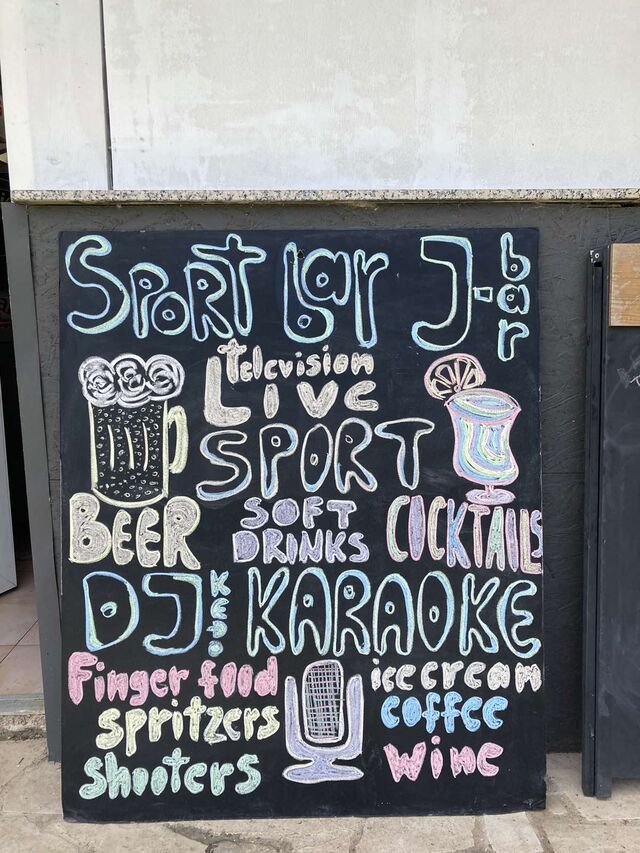 SPORT bar J-bar
television
LIVE
SPORT
BEER SOFT DRINKS COCKTAILS
DJ KEDO KARAOKE
Finger food
spritzers
shooters
ice cream
coffee
wine